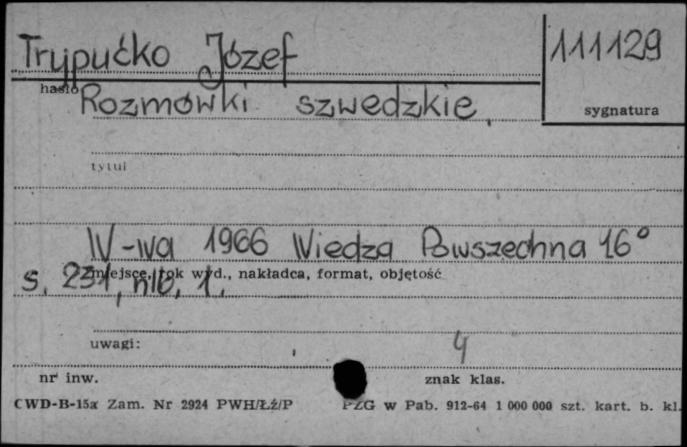 Trypućko Józef
111129
hasło
Rozmówki szwedzkie.
sygnatura
tytuł
W-wa 1966 Wiedza Powszechna 16°
miejsce, rok wyd., nakładca, format, objętość
s. 231, nlb. 1.
uwagi:
4
nr inw.
znak klas.
CWD-B-15a Zam. Nr 2924 PWH/Łź/P
PZG w Pab. 912-64 1 000 000 szt. kart. b. kl.